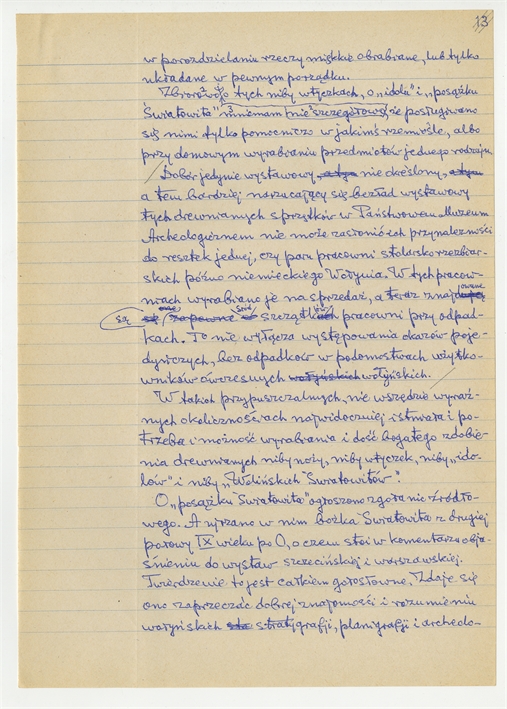 13
w porozdzielaniu rzeczy miękkie obrabiane, lub tylko
układane w pewnym porządku.
Zbiorowo o tych niby wtyczkach, o „idolu” i „posążku
Światowita” mniemam nie szczegółowo, że posługiwano
się nimi tylko pomocniczo w jakimś rzemiośle, albo
przy domowym wyrabianiu przedmiotów jednego rodzaju.
Dobór jedynie wystawowy, nie określony,
a tem bardziej narzucający się bezład wystawowy
tych drewnianych sprzątków w Państwowem Muzeum
Archeologicznem nie może zasłonić ich przynależności
do resztek jednej, czy paru pracowni stolarsko rzeźbiar-
skich późno niemieckiego Wolynia. W tych pracow-
niach wyrabiano je na sprzedaż, a teraz znajdowane
są szczątkami pracowni przy odpad-
kach. To nie wyłącza występowania okazów poje-
dyńczych, bez odpadków w podomostwach użytko-
wników ówczesnych wołyńskich.
W takich przypuszczalnych, nie wszędzie wyraź-
nych okolicznościach najwidoczniej istniała i po-
trzeba i możność wyrabiania i dość bogatego zdobie-
nia drewnianych niby noży, niby wtyczek, niby „ido-
lów” i niby „Wolińskich Światowitów”.
O „posążku Światowita” ogłoszono zgoła nie źródło-
wego. A ujrzano w nim bożka Światowita z drugiej
połowy IX wieku po O, o czem stoi w komentarzu obja-
śnieniu do wystaw szczecińskiej i warszawskiej.
Twierdzenie to jest całkiem gołosłowne. Zdaje się
ono zaprzeczać dobrej znajomości i rozumieniu
wołyńskich stratygrafji, planigrafji i archeolo-